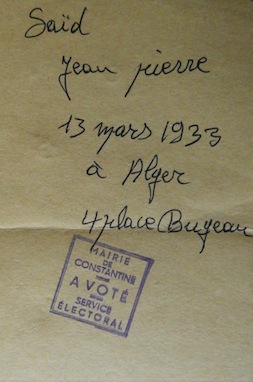 Saïd
Jean pierre
13 mars 1933
à Alger
4 place Bugeau
MAIRIE
DE
CONSTANTINE
A VOTÉ
SERVICE
ÉLECTORAL